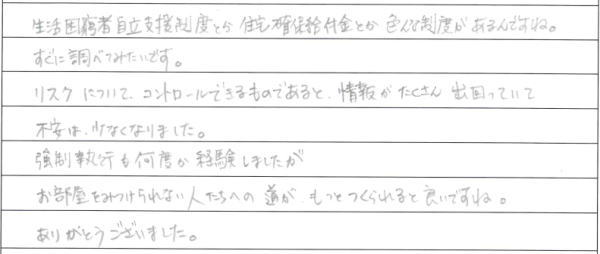 生活困窮者自立支援制度とか住宅確保給付金とか色んな制度があるんですね。
すぐに調べてみたいです。
リスクについて、コントロールできるものであると、情報がたくさん出回っていて
不安は、少なくなりました。
強制執行も何度か経験しましたが
お部屋をみつけられない人たちへの道が、もっとつくられると良いですね。
ありがとうございました。